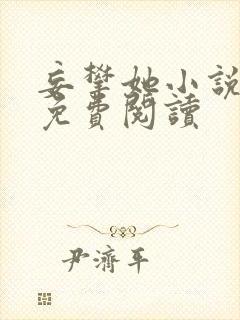 妄攀她小說
免費閱讀
尹濟平